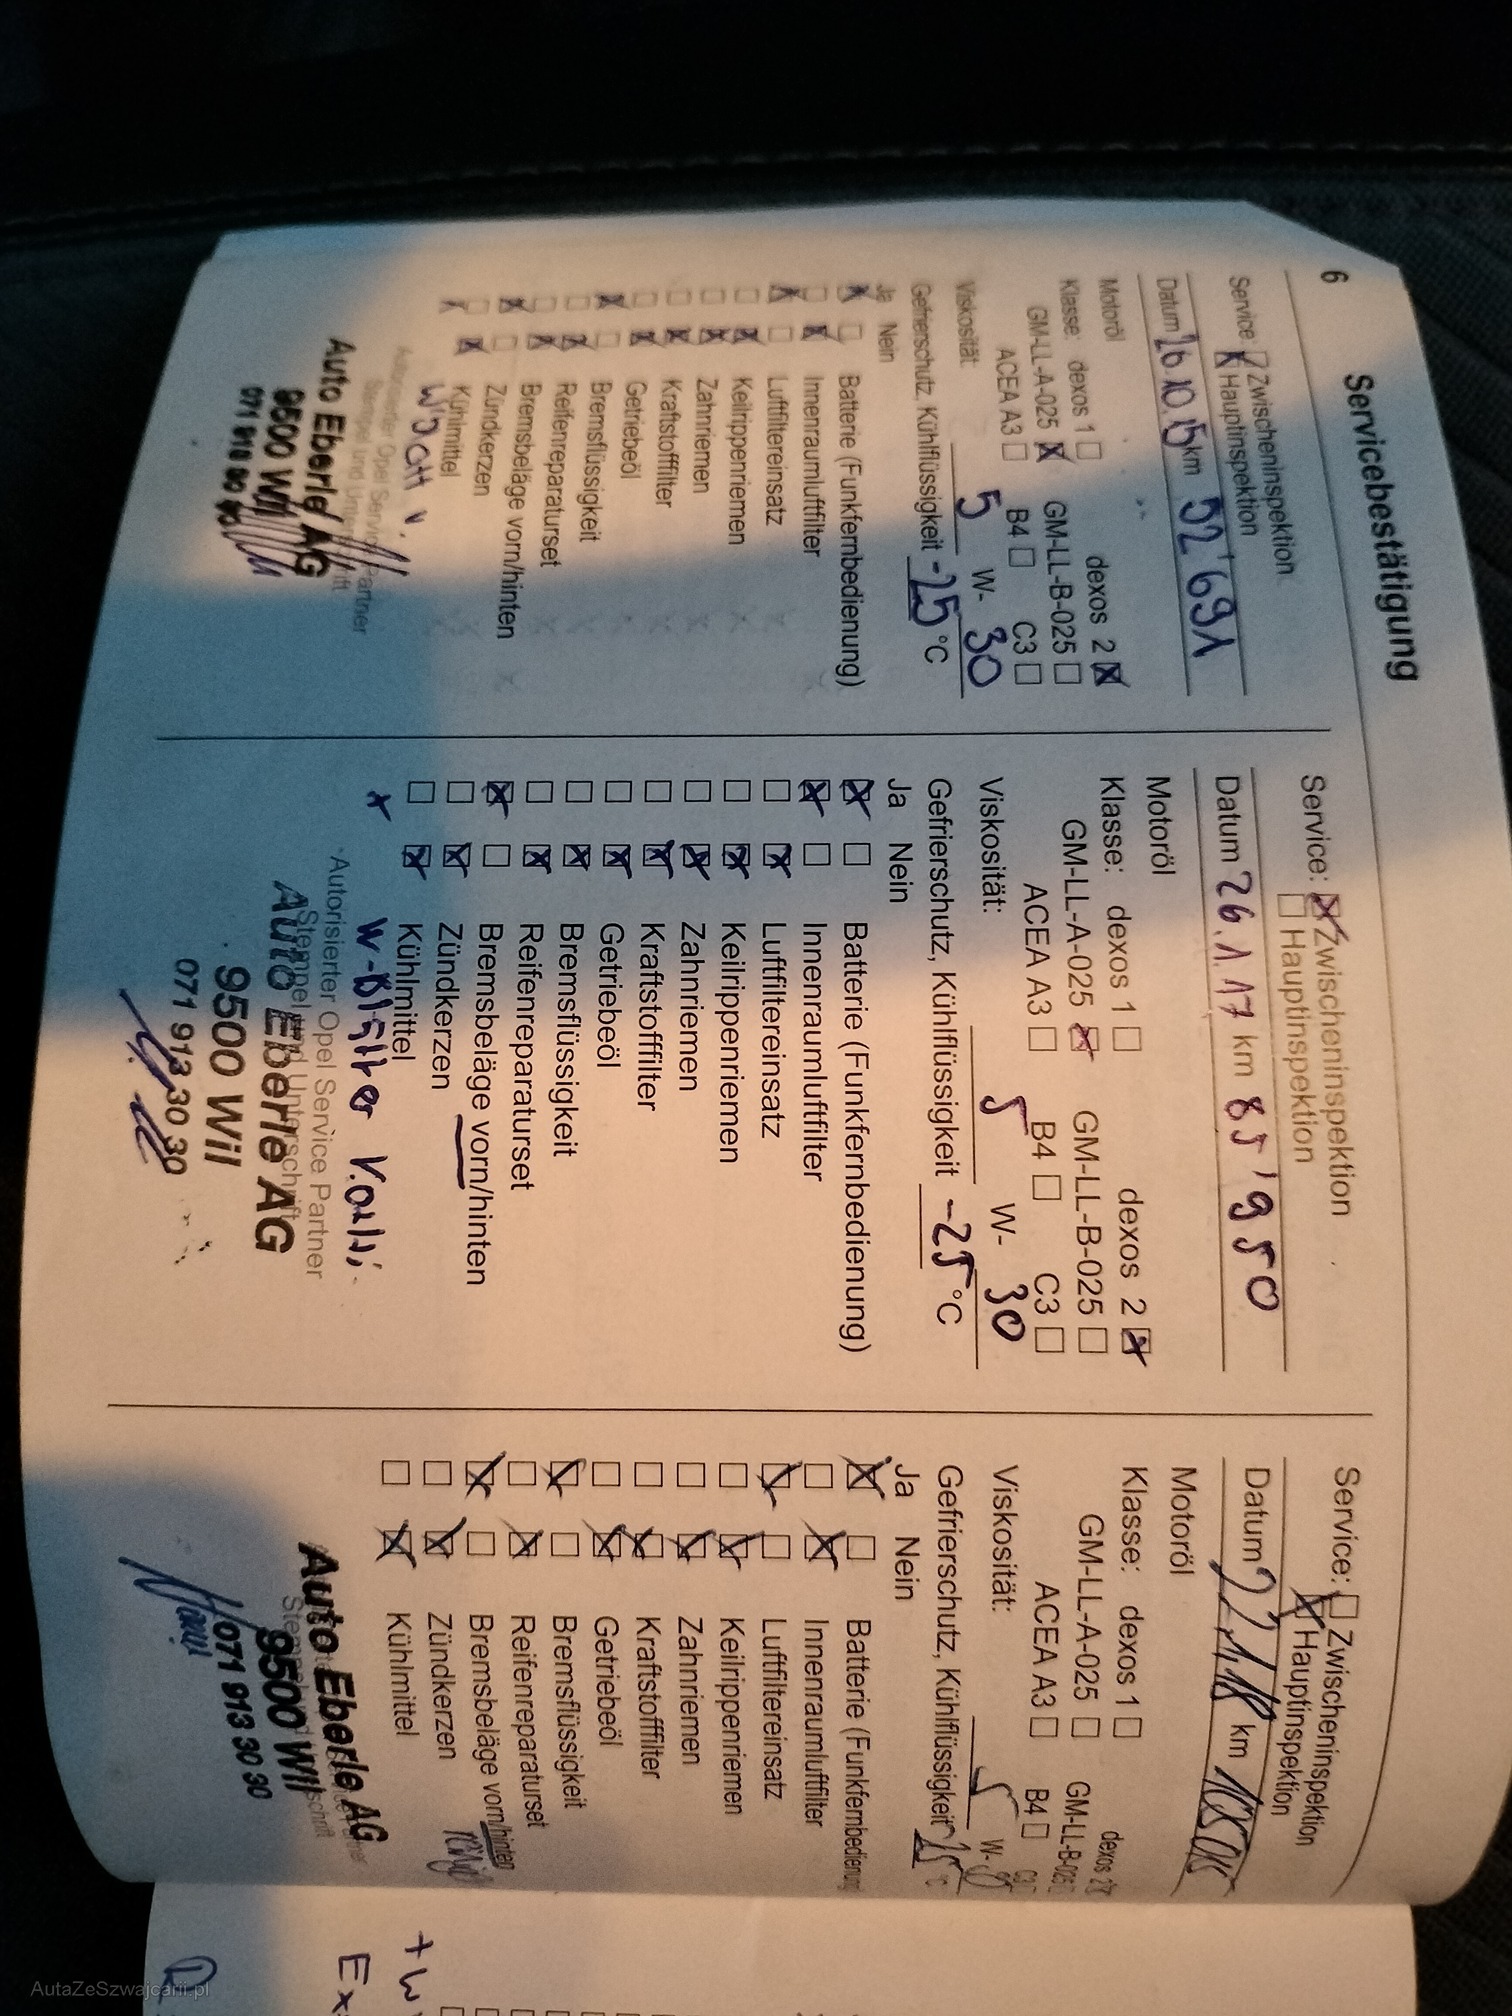 6
Servicebestätigung
Service: ☐ Zwischeninspektion
☒ Hauptinspektion
Datum 26.10.15 km 52'691
Motoröl
Klasse: dexos 1 ☐ dexos 2 ☒
GM-LL-A-025 ☒ GM-LL-B-025 ☐
ACEA A3 ☐ B4 ☐ C3 ☐
Viskosität: 5 W- 30
Gefrierschutz, Kühlflüssigkeit -25 °C
Ja Nein
☒ ☐ Batterie (Funkfernbedienung)
☐ ☒ Innenraumluftfilter
☒ ☐ Luftfiltereinsatz
☐ ☒ Keilrippenriemen
☐ ☒ Zahnriemen
☐ ☒ Kraftstofffilter
☐ ☒ Getriebeöl
☒ ☐ Bremsflüssigkeit
☐ ☒ Reifenreparaturset
☐ ☒ Bremsbeläge vorn/hinten
☒ ☐ Zündkerzen
☐ ☒ Kühlmittel
Autorisierter Opel Service Partner
Stempel und Unterschrift
Auto Eberle AG
9500 Wil
Service: ☒ Zwischeninspektion
☐ Hauptinspektion
Datum 26.1.17 km 85'950
Motoröl
Klasse: dexos 1 ☐ dexos 2 ☒
GM-LL-A-025 ☒ GM-LL-B-025 ☐
ACEA A3 ☐ B4 ☐ C3 ☐
Viskosität: 5 W- 30
Gefrierschutz, Kühlflüssigkeit -25 °C
Ja Nein
☒ ☐ Batterie (Funkfernbedienung)
☒ ☐ Innenraumluftfilter
☐ ☒ Luftfiltereinsatz
☐ ☒ Keilrippenriemen
☐ ☒ Zahnriemen
☐ ☒ Kraftstofffilter
☐ ☒ Getriebeöl
☐ ☒ Bremsflüssigkeit
☐ ☒ Reifenreparaturset
☒ ☐ Bremsbeläge vorn/hinten
☐ ☒ Zündkerzen
☐ ☒ Kühlmittel
Autorisierter Opel Service Partner
Stempel und Unterschrift
Auto Eberle AG
9500 Wil
071 913 30 30
Service: ☐ Zwischeninspektion
☒ Hauptinspektion
Datum km
Motoröl
Klasse: dexos 1 ☐ dexos 2
GM-LL-A-025 ☐ GM-LL-B-025
ACEA A3 ☐ B4 ☐
Viskosität: 5 W- 30
Gefrierschutz, Kühlflüssigkeit -25 °C
Ja Nein
☒ ☐ Batterie (Funkfernbedienung
☐ ☒ Innenraumluftfilter
☒ ☐ Luftfiltereinsatz
☐ ☒ Keilrippenriemen
☐ ☒ Zahnriemen
☐ ☒ Kraftstofffilter
☐ ☒ Getriebeöl
☒ ☐ Bremsflüssigkeit
☐ ☒ Reifenreparaturset
☒ ☐ Bremsbeläge vorn/hinten
☐ ☒ Zündkerzen
☐ ☒ Kühlmittel
Auto Eberle AG
9500 Wil
071 913 30 30
AutaZeSzwajcarii.pl